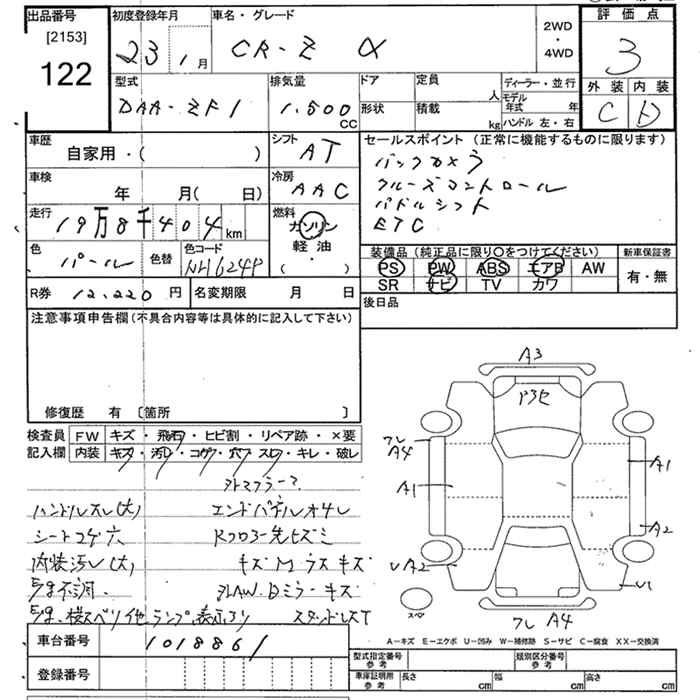 出品番号 初度登録年月 車名・グレード 評価点
[2153]
122
23年 1月 CR-Z α 2WD・4WD 3
型式 排気量 ドア 定員 人 ディーラー・並行 外装 内装
DAA-ZF1 1.500 CC 形状 積載 kg モデル年式 年 C D
ハンドル 左・右
車歴 シフト セールスポイント (正常に機能するものに限ります)
自家用・( ) AT バックカメラ
車検 冷房 クルーズコントロール
年 月( 日) AAC パドルシフト
走行 燃料 ETC
19万8千404km ガソリン
軽油
・( )
色 色替 色コード 装備品 (純正品に限り〇をつけてください) 新車保証書
パール NH624P PS PW ABS エアB AW 有・無
SR ナビ TV カワ
R券 12,220 円 名変期限 月 日 後日品
注意事項申告欄 (不具合内容等は具体的に記入して下さい)
修復歴 有 〔箇所 〕
検査員 FW キズ・飛石・ヒビ割・リペア跡・×要
記入欄 内装 キズ・汚レ・コゲ・穴・スレ・キレ・破レ
社外マフラー
ハンドルスレ(大) エンドパネルオサレ
シートコゲ穴
内装汚レ(大) キズ
ミラーキズ
スタッドレスT
A3
フレ A4
A1 A1
A2
A2
U1
スペア フレ A4
A−キズ E−エクボ U−凹み W−補修跡 S−サビ C−腐食 XX−交換済
車台番号 1018861 型式指定番号 参考 類別区分番号 参考
登録番号 車庫証明用 参考 長さ cm 幅 cm 高さ cm